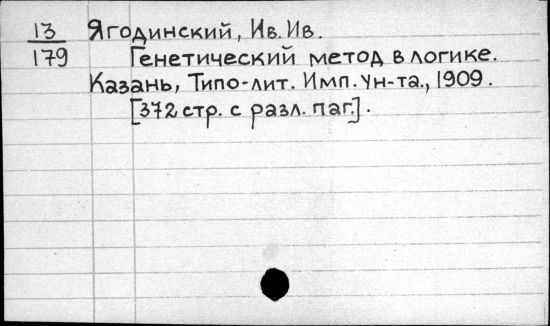 13 Ягодинский, Ив. Ив.
179 Генетический метод в логике.
Казань, Типо-лит. Имп. Ун-та., 1909.
[372 стр. с разл. паг.].